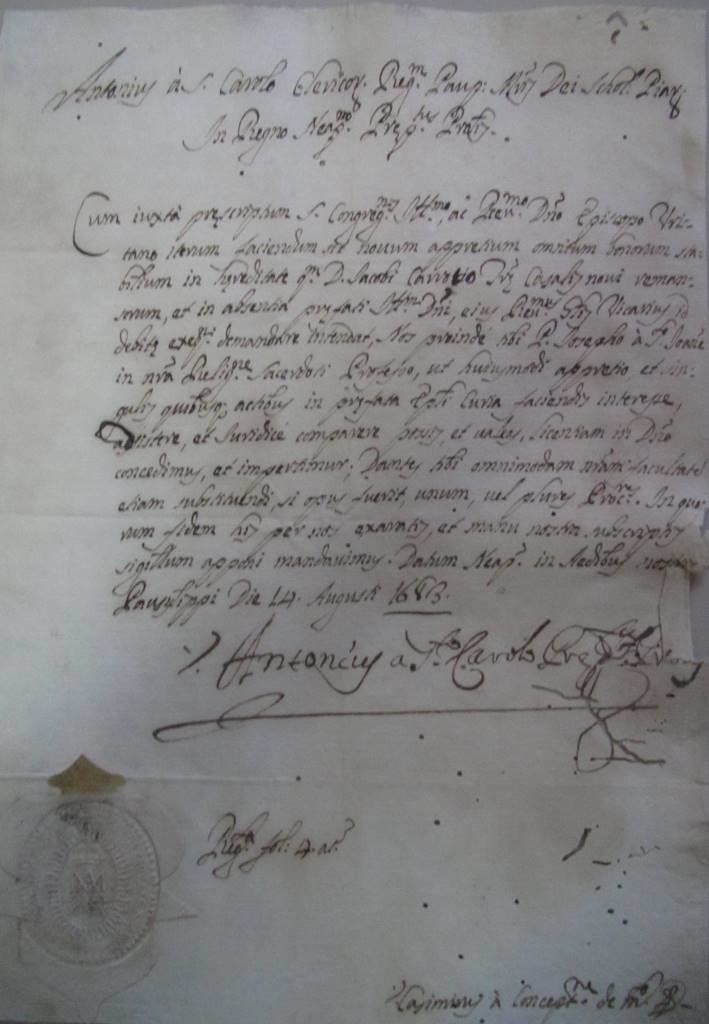 Antonius à S. Carolo Clericor. Reg.m Paup: Mris Dei Schol. Piar.
In Regno Neap.no Prep.tus Prov.lis.
Cum iuxta prescriptum S. Congreg.nis Ill.mo, ac Rev.mo Dno Episcopo Uri-
tano iterum faciendum sit novum appretium omnium bonorum sta-
bilium in hereditate qm. D. Jacobi Casalis novi reman-
sorum, et in absentia prefati Ill.mi Dni, eius Rev.mus Glis Vicarius id
debite exeq.ni demandare intendat, Nos proinde tibi P. Josepho à S. Joane
in nra Relig.ne Sacerdoti Professo, ut huiusmodi appretio et sin-
gulis quibusq; actibus in prefata Epli Curia faciendis interesse,
assistere, et Juridicé comparere possis, et valeas, licentiam in Dno
concedimus, et impertimur; Dantes tibi omnimodam nram facultaté
etiam substituendi, si opus fuerit, unum, vel plures Proc.res. In quo-
rum fidem his per nos exaratis, et manu nostra subscriptis
sigillum apponi mandavimus. Datum Neap. in Aedibus nostris
Pausilippi Die 14. Augusti 1683.
Antonius à S.to Carolo Prep.tus
Reg.ta fol: 4. at.
Casimirus à Concept.ne